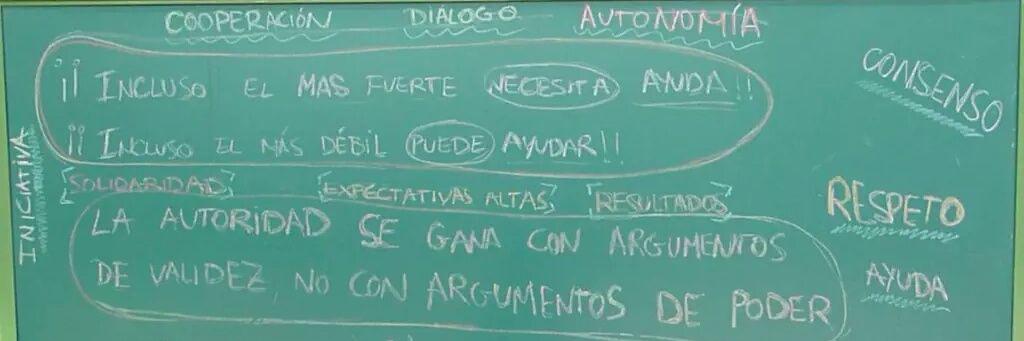 COOPERACIÓN DIÁLOGO AUTONOMÍA
¡¡ INCLUSO EL MAS FUERTE NECESITA AYUDA!!
¡¡ INCLUSO EL MÁS DÉBIL PUEDE AYUDAR!!
[SOLIDARIDAD] [EXPECTATIVAS ALTAS] [RESULTADOS]
LA AUTORIDAD SE GANA CON ARGUMENTOS
DE VALIDEZ, NO CON ARGUMENTOS DE PODER
INICIATIVA
CONSENSO
RESPETO
AYUDA